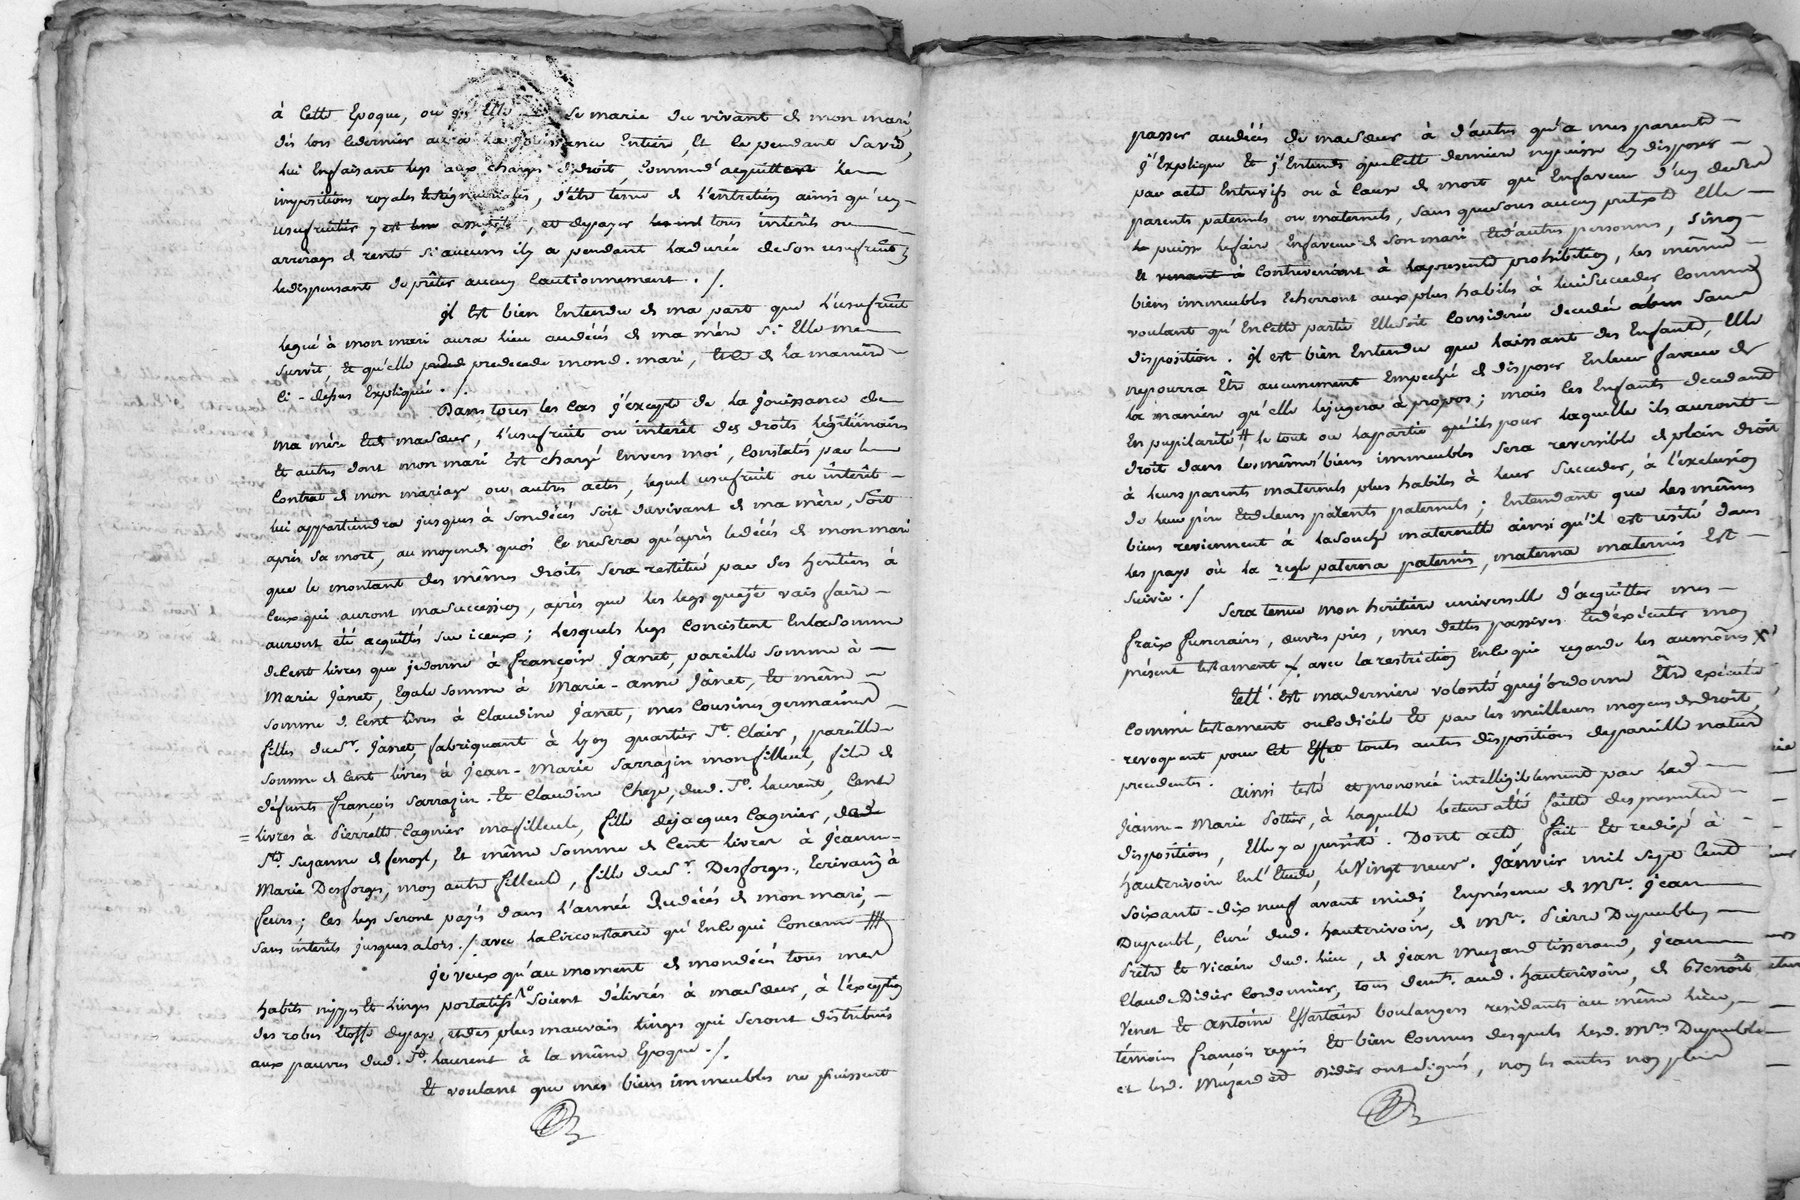 à Cette Epoque, ou qu'Elle se marie du vivant de mon mari,
dès lors ledernier aura la jouissance Entiere, Et le pendant Savie,
lui Enfaisant legs aux charges dedroit, Comme d'acquitter les
impositions royales, d'être tenu de l'entretien ainsi qu'un
usufruitier y est, et depayer tous interêts ou
arrerages de rente si aucuns il y a pendant ladurée deson usufruit,
ledispensant deprêter aucun Cautionnement ./.
il Est bien Entendu de ma part que l'usufruit
legué à mon mari aura lieu audécés de ma mère si Elle me
survit, Et qu'elle predecede mond. mari, de la maniere
Ci-dessus Expliquée ./
Dans tous les Cas j'excepte de la jouissance de
ma mère Et de masoeur, l'usufruit ou interêt des droits légitimaires
Et autres dont mon mari Est chargé Envers moi, Constatés par le
Contrat de mon mariage ou autres actes, lequel usufruit ou interêt
lui appartiendra jusques à Sondécés soit duvivant de ma mère, Soit
après sa mort, au moyende quoi Ce nesera qu'après ledécés de mon mari
que le montant des mêmes droits Sera restitué par Ses heritiers à
Ceux qui auront masuccession, après que les legs queje vais faire
auront été acquittés sur iceux; lesquels legs Consistent Enlasomme
deCent livres que jedonne à françoise Janet, pareille somme à
Marie Janet, Egale somme à Marie-anne Janet, Et même
somme de Cent livres à Claudine Janet, mes Cousines germaines
filles duSr. Janet, fabriquant à Lyon quartier St. Clair, pareille
somme de Cent livres à Jean-Marie Sarrazin monfilleul, fils de
défunts françois Sarrazin Et Claudine Cheze, dud. St. laurent, Cent
livres à Pierrette Cagnier mafilleule, fille dejacques Cagnier, de
Ste. Suzanne de fenoyl, Et même Somme de Cent livres à Jeanne-
Marie Desforges, mon autre filleule, fille duSr. Desforges, Ecrivain à
feurs; Ces legs seront payés dans l'année dudécés de mon mari,
sans interêts jusques alors ./ avec la Circonstance qu'En Ce qui Concerne #
Je veux qu'au moment de mondécés tous mes
habits nippes Et linges portatifs soient délivrés à masoeur, à l'exception
des robes Etoffe depays, et des plus mauvais linges qui Seront distribués
aux pauvres dud. St. laurent à la même Epoque ./.
Et voulant que mes biens immeubles ne puissent
passer audécés de masoeur à d'autres qu'a mes parents
j'Explique Et j'Entends queCette derniere nepuisse En disposer
par acte Entrevifs ou à Cause de mort qu'Enfaveur d'un deses
parents paternels ou maternels, Sans quesous aucun pretexte Elle
puisse lefaire Enfaveur de Son mari Et d'autres personnes, Sinon
Contrevenant à lapresente prohibition, les mêmes
biens immeubles Echerront aux plus habiles à luiSucceder, Comme
voulant qu'EnCette partie Ellesoit Considerée decedée Sans
disposition. il est bien Entendu que laissant des Enfants, Elle
nepourra Être aucunement Empechée de disposer Enleur faveur de
la maniere qu'elle lejugera à propos; mais Ces Enfants decedants
En pupilarité # le tout ou lapartie qu'ils pour laquelle ils auront
droit dans lesmêmes biens immeubles Sera reversible de plein droit
à leurs parents maternels plus habiles à leur Succeder, à l'exclusion
de leur père Et deleurs parents paternels; Entendant que les mêmes
biens reviennent à lasouche maternelle ainsi qu'il est usité dans
les pays où la regle paterna paternis, materna maternis Est
Suivie ./
Sera tenue Mon heritiere universelle d'acquitter mes
fraix funeraires, oeuvres pies, mes dettes passives Et d'éxécuter mon
présent testament ./. avec la restriction EnCe qui regarde les aumônes
Telle Est maderniere volonté que j'ordonne Être exécutée
Comme testament ouCodicile Et par les meilleurs moyens dedroit,
revoquant pour Cet Effet toutes autres dispositions depareille nature
precedentes. Ainsi testé et prononcé intelligiblement par lad.
Jeanne-Marie Sottier, à laquelle lecture a été faitte despresentes
dispositions, Elle y a persisté. Dont acte fait Et redigé à
hauterivoire En l'Etude, leVingt neuf. Janvier mil Sept Cent
soixante-dix neuf avant midi, Enprésence de Mre. Jean
Dupeuble, Curé dud. hauterivoire, de Mre. Pierre Dupeuble,
Prêtre et Vicaire dud. lieu, de Jean Muzard tisserand, Jean
Claude Didier Cordonnier, tous demts. aud. hauterivoire, de Benoît
Venet Et Antoine Effantain boulangers residants au même lieu,
témoins françois requis Et bien Connus desquels lesd. Mres. Dupeuble
et lesd. Muzard et Didier ont Signés, non les autres non plus